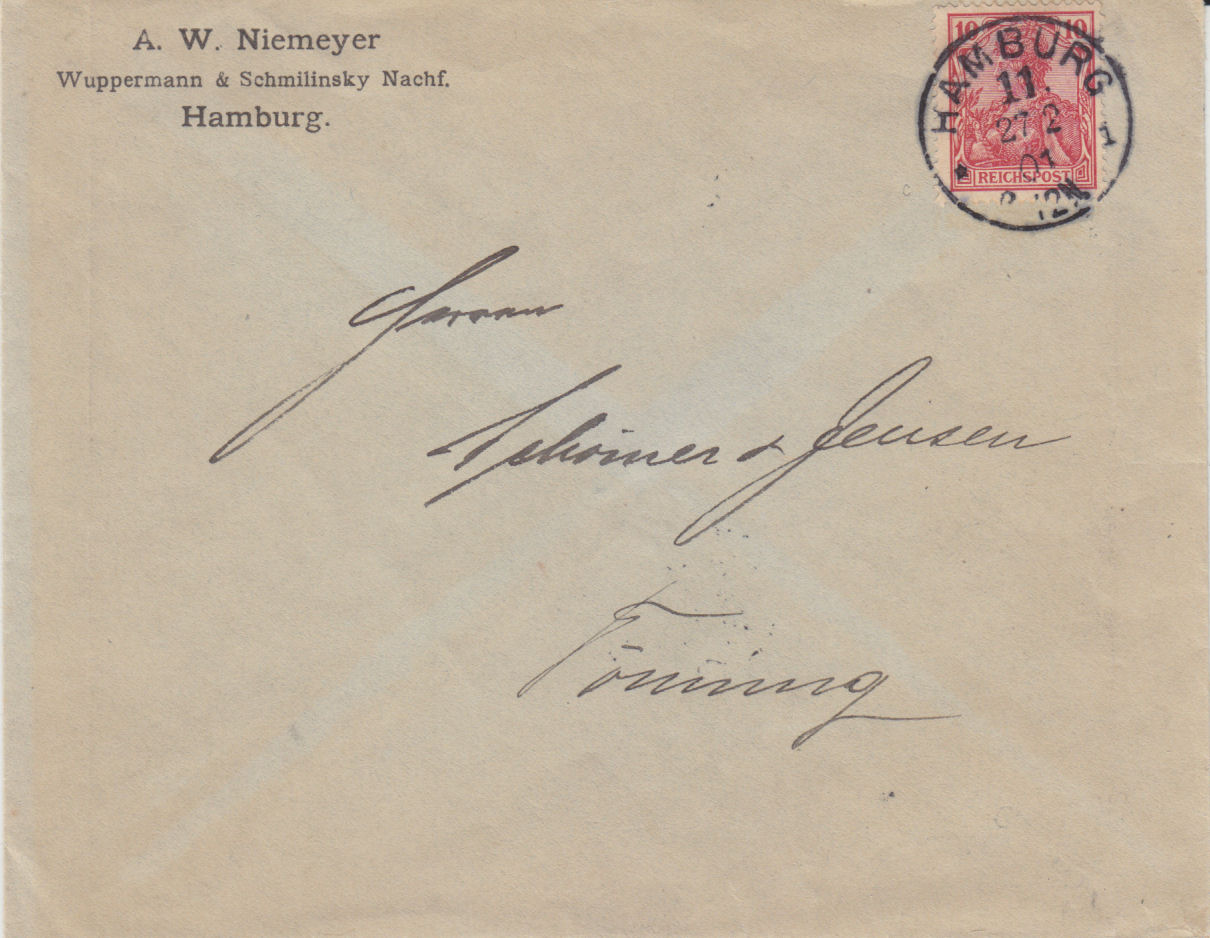 A. W. Niemeyer
Wuppermann & Schmilinsky Nachf.
Hamburg.
10 10
REICHSPOST
HAMBURG
11.
27 2
01
Herren
& Jensen
Tönning